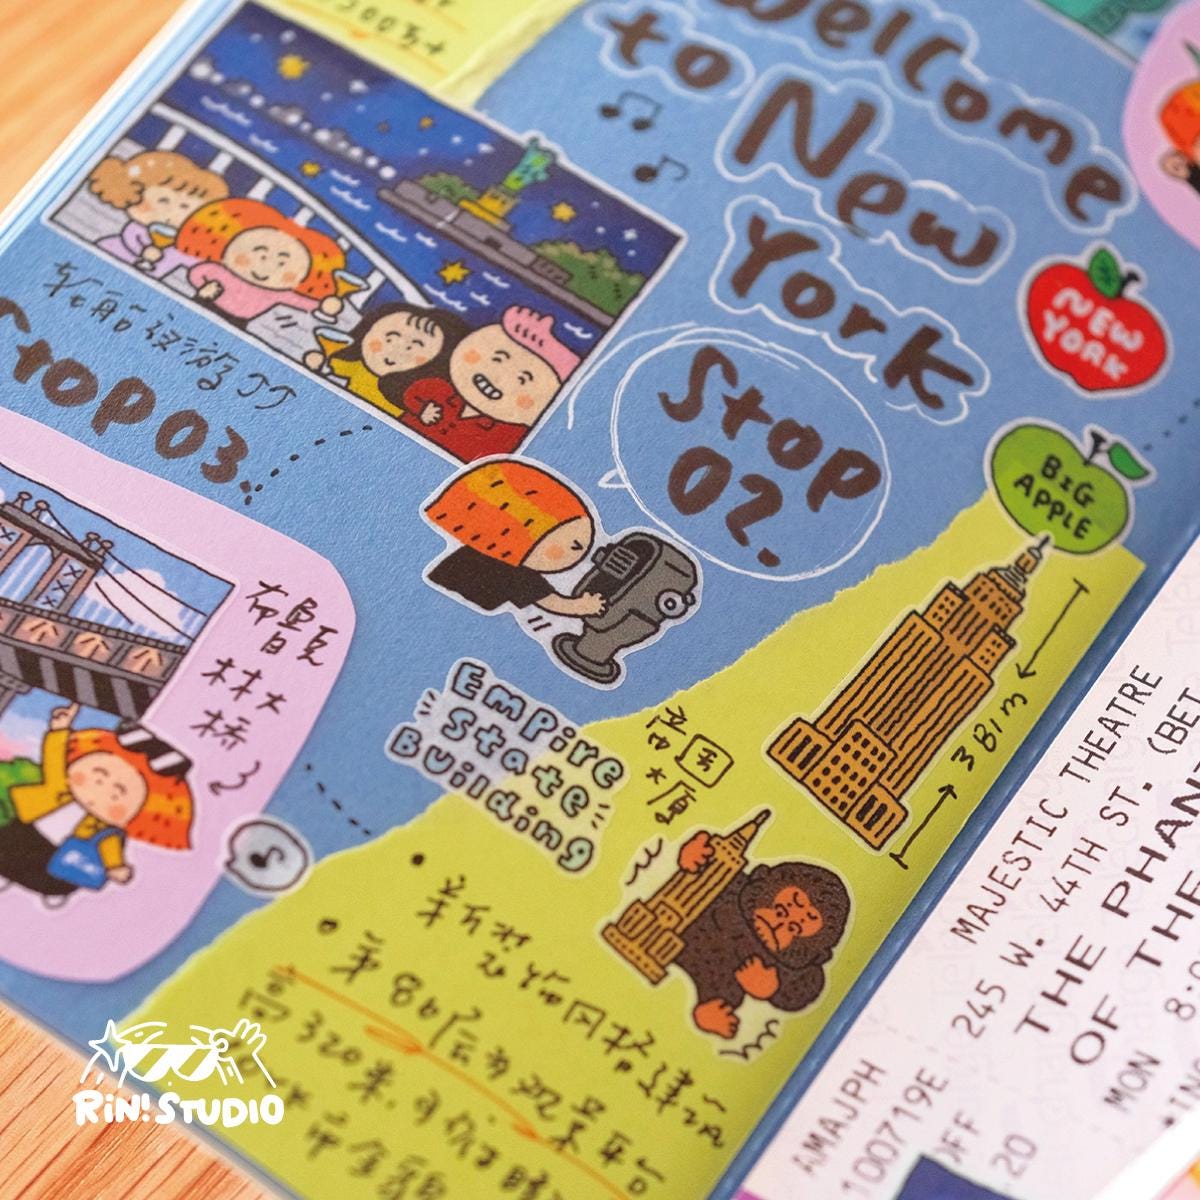 Welcome
to New
York
NEW
YORK
Stop
02.
BIG
APPLE
在船上夜游
Stop03.
布鲁克
林大
桥
Empire
State
Building
帝国
大厦
381m
新哥特风格建筑
第86层为观景台
高320米,可俯瞰
MAJESTIC THEATRE
245 W. 44TH ST. (BET
THE PHANT
OF THE
MON 8:0
AMAJPH
100719E
OFF
20
RiN! STUDIO